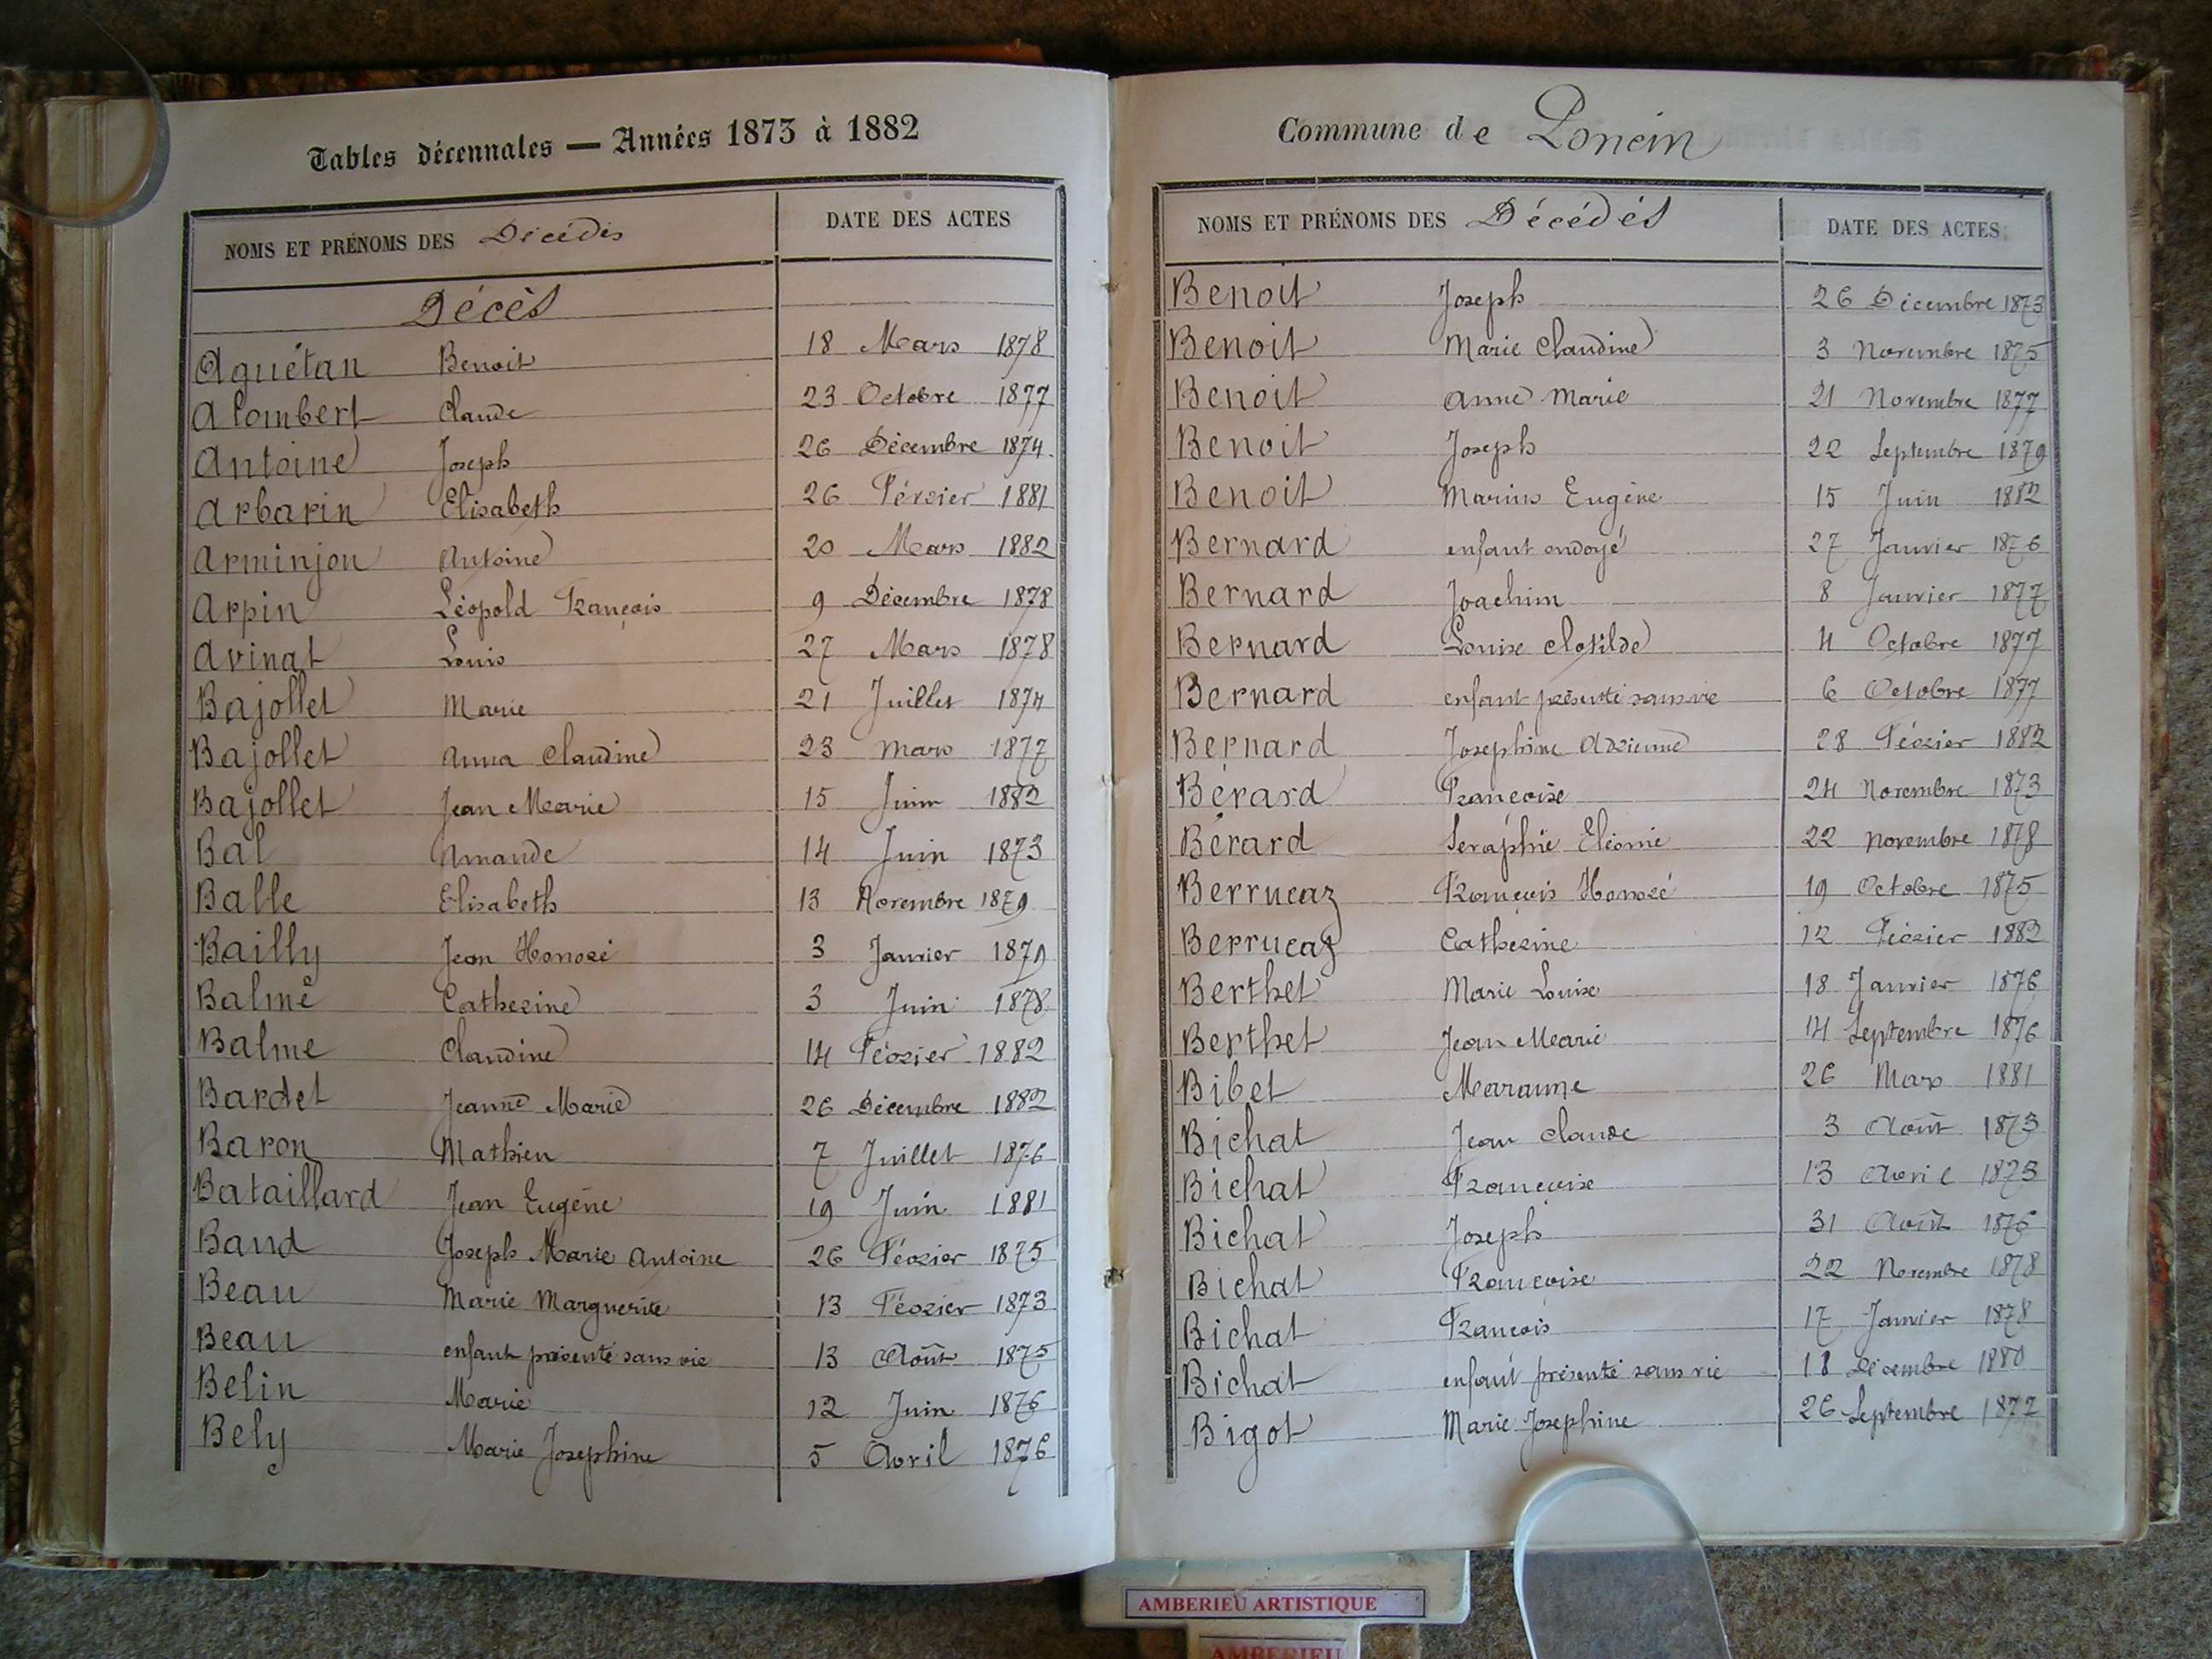 Tables décennales — Années 1873 à 1882
NOMS ET PRÉNOMS DES Décédés DATE DES ACTES
Décès
Aguétan Benoit 18 Mars 1878
Alombert Claude 23 Octobre 1877
Antoine Joseph 26 Décembre 1874
Arbarin Elisabeth 26 Février 1881
Arminjon Antoine 20 Mars 1882
Arpin Léopold François 9 Décembre 1878
Avinat Louis 27 Mars 1878
Bajollet Marie 21 Juillet 1874
Bajollet Anna Claudine 23 Mars 1877
Bajollet Jean Marie 15 Juin 1882
Bal Amande 14 Juin 1873
Balle Elisabeth 13 Novembre 1879
Bailly Jean Honoré 3 Janvier 1879
Balme Catherine 3 Juin 1878
Balme Claudine 14 Février 1882
Bardet Jeanne Marie 26 Décembre 1882
Baron Mathieu 7 Juillet 1876
Bataillard Jean Eugène 19 Juin 1881
Baud Joseph Marie Antoine 26 Février 1875
Beau Marie Marguerite 13 Février 1873
Beau enfant présenté sans vie 13 Août 1875
Belin Marie 12 Juin 1876
Bely Marie Josephine 5 Avril 1876
Commune de Poncin
NOMS ET PRÉNOMS DES Décédés DATE DES ACTES
Benoit Joseph 26 Décembre 1873
Benoit Marie Claudine 3 Novembre 1875
Benoit Anne Marie 21 Novembre 1877
Benoit Joseph 22 Septembre 1879
Benoit Marius Eugène 15 Juin 1882
Bernard enfant ondoyé 27 Janvier 1876
Bernard Joachim 8 Janvier 1877
Bernard Louise Clotilde 4 Octobre 1877
Bernard enfant présenté sans vie 6 Octobre 1877
Bernard Josephine Adrienne 28 Février 1882
Bérard Françoise 24 Novembre 1873
Bérard Seraphie Eléonie 22 Novembre 1878
Berrucaz François Honoré 19 Octobre 1875
Berrucaz Catherine 12 Février
Berthet Marie Louise 18 Janvier 1876
Berthet Jean Marie 14 Septembre 1876
Bibet 26 Mars 1881
Bichat Jean Claude 3 Août 1873
Bichat Françoise 13 Avril
Bichat Joseph 31 Août 1876
Bichat Françoise 22 Novembre 1878
Bichat François 17 Janvier 1878
Bichat enfant présenté sans vie 18 Décembre 1880
Bigot Marie Josephine 26 Septembre
AMBERIEU ARTISTIQUE
AMBERIEU